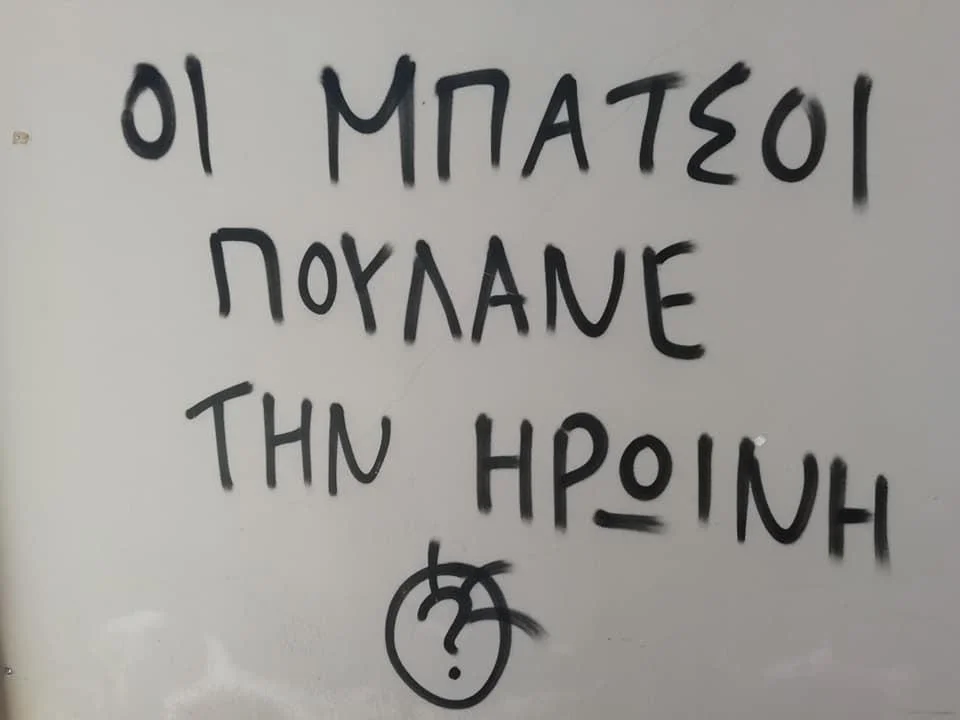 ΟΙ ΜΠΑΤΣΟΙ
ΠΟΥΛΑΝΕ
ΤΗΝ ΗΡΩΙΝΗ
?